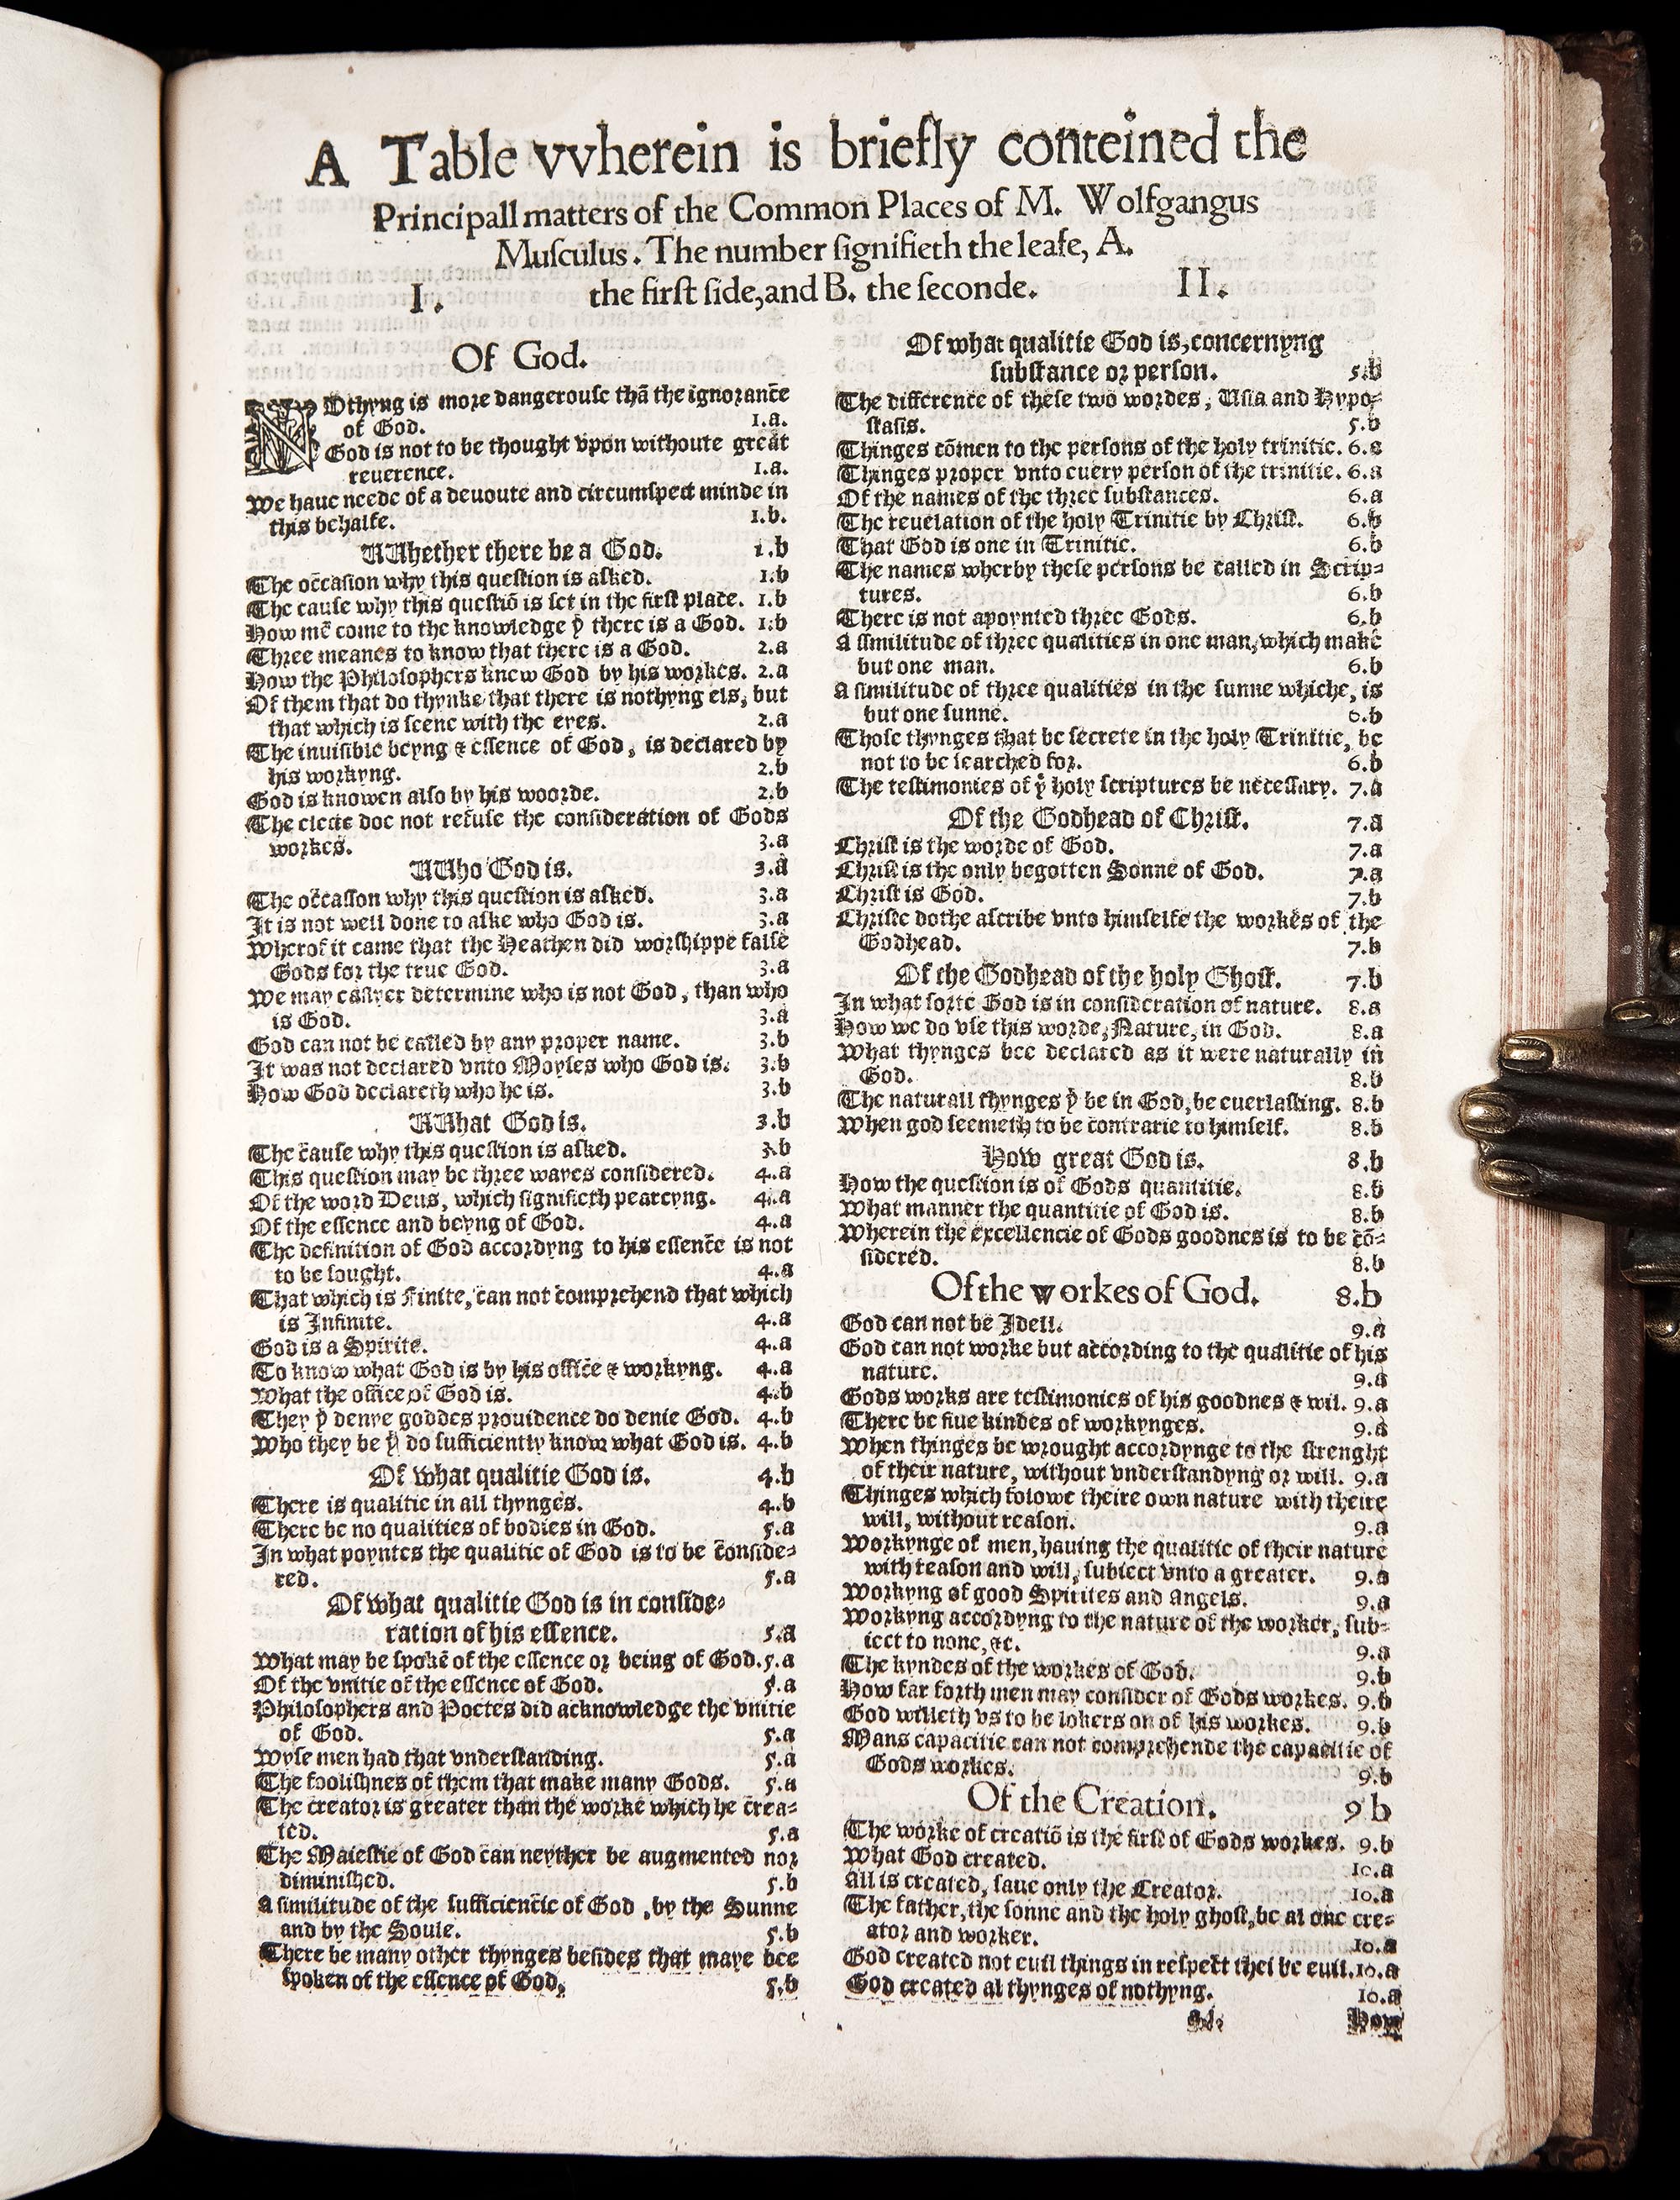 A Table vvherein is briefly conteined the
Principall matters of the Common Places of M. Wolfgangus
Musculus. The number signifieth the leafe, A.
the first side, and B. the seconde.
I.
Of God.
NOthyng is more dangerouse thā the ignorance
of God. 1.a.
God is not to be thought vpon withoute great
reuerence. 1.a.
We haue neede of a deuoute and circumspect minde in
this behalfe. 1.b.
VVhether there be a God. 1.b
The occasion why this question is asked. 1.b
The cause why this questiō is set in the first place. 1.b
How mē come to the knowledge yͭ there is a God. 1.b
Three meanes to know that there is a God. 2.a
How the Philosophers knew God by his workes. 2.a
Of them that do thynke that there is nothyng els, but
that which is seene with the eyes. 2.a
The inuisible beyng & essence of God, is declared by
his workyng. 2.b
God is knowen also by his woorde. 2.b
The electe doe not refuse the consideration of Gods
workes. 3.a
VVho God is. 3.a
The occasion why this question is asked. 3.a
It is not well done to aske who God is. 3.a
Wherof it came that the Heathen did worshippe false
Gods for the true God. 3.a
We may easyer determine who is not God, than who
is God. 3.a
God can not be called by any proper name. 3.b
It was not declared vnto Moyses who God is. 3.b
How God declareth who he is. 3.b
VVhat God is. 3.b
The cause why this question is asked. 3.b
This question may be three wayes considered. 4.a
Of the word Deus, which signifieth pearcyng. 4.a
Of the essence and beyng of God. 4.a
The definition of God accordyng to his essence is not
to be sought. 4.a
That which is Finite, can not comprehend that which
is Infinite. 4.a
God is a Spirite. 4.a
To know what God is by his office & workyng. 4.a
What the office of God is. 4.b
They yͭ denye goddes prouidence do denie God. 4.b
Who they be yͭ do sufficiently know what God is. 4.b
Of what qualitie God is. 4.b
There is qualitie in all thynges. 4.b
There be no qualities of bodies in God. 5.a
In what poyntes the qualitie of God is to be conside-
red. 5.a
Of what qualitie God is in conside-
ration of his essence. 5.a
What may be spokē of the essence or being of God. 5.a
Of the vnitie of the essence of God. 5.a
Philosophers and Poetes did acknowledge the vnitie
of God. 5.a
Wyse men had that vnderstanding. 5.a
The foolishnes of them that make many Gods. 5.a
The creator is greater than the worke which he crea-
ted. 5.a
The Maiestie of God can neyther be augmented nor
diminished. 5.b
A similitude of the sufficiencie of God, by the Sunne
and by the Soule. 5.b
There be many other thynges besides that maye bee
spoken of the essence of God. 5.b
II.
Of what qualitie God is, concernyng
substance or person. 5.b
The difference of these two wordes, Usia and Hypo-
stasis. 5.b
Thinges cōmen to the persons of the holy trinitie. 6.a
Thinges proper vnto euery person of the trinitie. 6.a
Of the names of the three substances. 6.a
The reuelation of the holy Trinitie by Christ. 6.b
That God is one in Trinitie. 6.b
The names wherby these persons be called in Scrip-
tures. 6.b
There is not apoynted three Gods. 6.b
A similitude of three qualities in one man, which make
but one man. 6.b
A similitude of three qualities in the sunne whiche, is
but one sunne. 6.b
Those thynges that be secrete in the holy Trinitie, be
not to be searched for. 6.b
The testimonies of yͤ holy scriptures be necessary. 7.a
Of the Godhead of Christ. 7.a
Christ is the worde of God. 7.a
Christ is the only begotten Sonne of God. 7.a
Christ is God. 7.b
Christe dothe ascribe vnto himselfe the workes of the
Godhead. 7.b
Of the Godhead of the holy Ghost. 7.b
In what sorte God is in consideration of nature. 8.a
How we do vse this worde, Nature, in God. 8.a
What thynges bee declared as it were naturally in
God. 8.b
The naturall thynges yͭ be in God, be euerlasting. 8.b
When god seemeth to be contrarie to himself. 8.b
How great God is. 8.b
How the question is of Gods quantitie. 8.b
What manner the quantitie of God is. 8.b
Wherein the excellencie of Gods goodnes is to be cō-
sidered. 8.b
Of the workes of God. 8.b
God can not be Idell. 9.a
God can not worke but according to the qualitie of his
nature. 9.a
Gods works are testimonies of his goodnes & wil. 9.a
There be fiue kindes of workynges. 9.a
When thinges be wrought accordynge to the strenght
of their nature, without vnderstandyng or will. 9.a
Thinges which folowe theire own nature with theire
will, without reason. 9.a
Workynge of men, hauing the qualitie of their nature
with reason and will, subiect vnto a greater. 9.a
Workyng of good Spirites and Angels. 9.a
Workyng accordyng to the nature of the worker, sub-
iect to none, &c. 9.a
The kyndes of the workes of God. 9.b
How far forth men may consider of Gods workes. 9.b
God willeth vs to be lokers on of his workes. 9.b
Mans capacitie can not comprehende the capacitie of
Gods workes. 9.b
Of the Creation. 9 b
The worke of creatiō is the first of Gods workes. 9.b
What God created. 10.a
All is created, saue only the Creator. 10.a
The father, the sonne and the holy ghost, be al one cre-
ator and worker. 10.a
God created not euil things in respect thei be euil. 10.a
God created al thynges of nothyng. 10.a
How